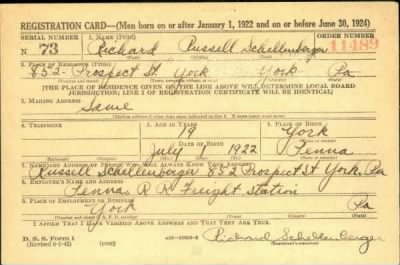 REGISTRATION CARD—(Men born on or after January 1, 1922 and on or before June 30, 1924)
SERIAL NUMBER 1. NAME (Print) ORDER NUMBER
N 73 Richard Russell Schellenberger 11489
(First) (Middle) (Last)
2. PLACE OF RESIDENCE (Print)
852- Prospect St York York Pa
[THE PLACE OF RESIDENCE GIVEN ON THE LINE ABOVE WILL DETERMINE LOCAL BOARD
JURISDICTION; LINE 2 OF REGISTRATION CERTIFICATE WILL BE IDENTICAL]
3. MAILING ADDRESS
Same
4. TELEPHONE 5. AGE IN YEARS 6. PLACE OF BIRTH
19 York
DATE OF BIRTH
July 1 1922 Penna
7. NAME AND ADDRESS OF PERSON WHO WILL ALWAYS KNOW YOUR ADDRESS
Russell Schellenberger 852 Prospect St York, Pa
8. EMPLOYER'S NAME AND ADDRESS
Penna R R Freight Station
9. PLACE OF EMPLOYMENT OR BUSINESS
York Pa
I AFFIRM THAT I HAVE VERIFIED ABOVE ANSWERS AND THAT THEY ARE TRUE.
D. S. S. Form 1
(over)
Richard Schellenberger